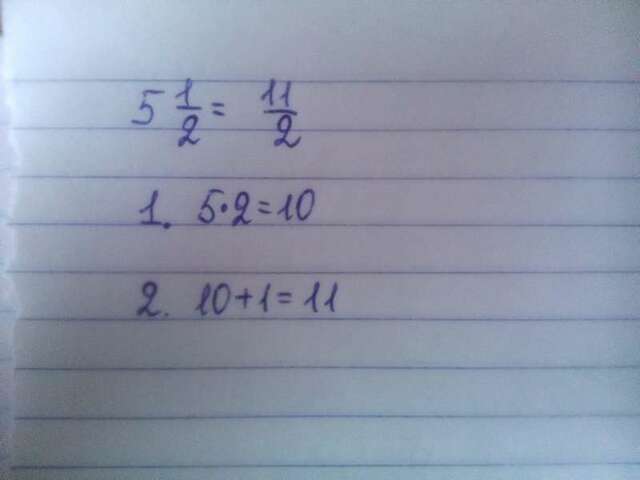 5 1/2 = 11/2
1. 5·2=10
2. 10+1=11